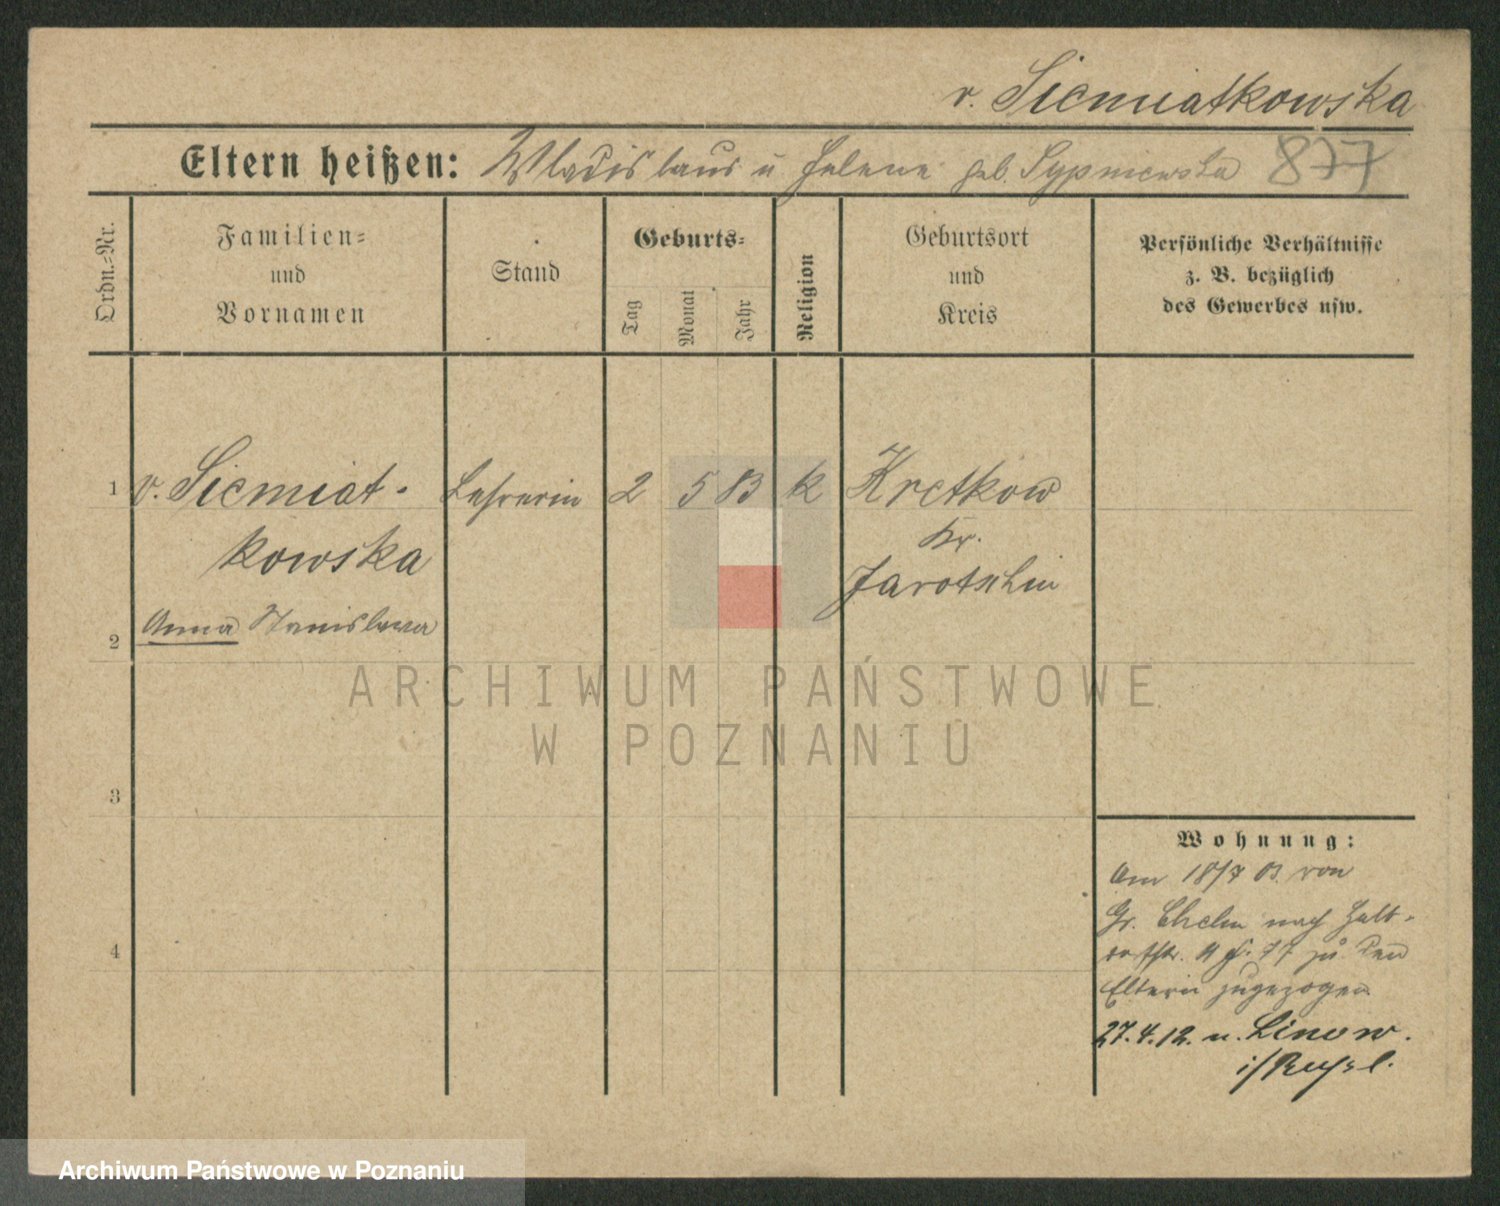 v. Siemiatkowska
Eltern heißen: Wladislaus u Helene geb. Sypniewska 877
Ordn.-Nr.
Familien-
und
Vornamen
Stand
Geburts-
Tag
Monat
Jahr
Religion
Geburtsort
und
Kreis
Persönliche Verhältnisse
z. B. bezüglich
des Gewerbes usw.
1 v. Siemiat- Lehrerin 2 5 83 k Kretkow
kowska Kr.
Jarotschin
2 Anna Stanislawa
3
4
Wohnung:
Am 18/7 von
Gr. Chelm nach Halb-
zu den
Eltern zugezogen
27.4.12. n. Linow.
ARCHIWUM PAŃSTWOWE
W POZNANIU
Archiwum Państwowe w Poznaniu